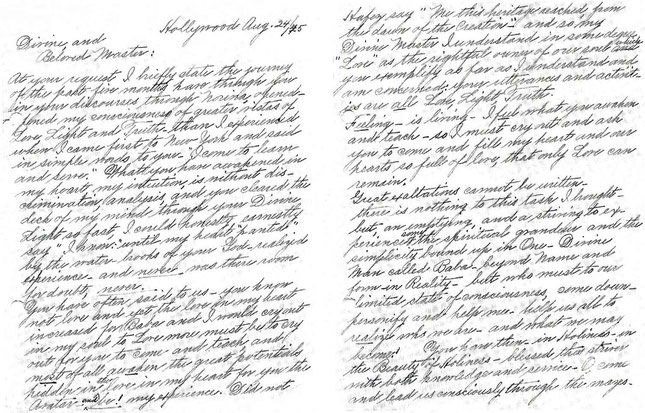 Hollywood Aug. 24/35
Divine and
Beloved Master:
At your request I briefly state the journey
of the past five months, how through you
in your discourses, through Norina, opened-
tuned my consciousness of greater vistas of
Love, Light and Truth- than I experienced
when I came first to New York and said
in simple words to you- "I come to learn
and serve." What you have awakened in
my heart, my intuition, is without dis-
crimination, analysis, and you cleared the
deck of my mind through your Divine
Light so fast, I could honestly, earnestly
say "I know" until my heart "panteds"
by the water-brooks of your God-realized
experience- and never was there room
for doubt, never.
You have often said to us- you know
not love and yet the love in my heart
increased for Baba and I would cry out
in my soul to Love more, must be to cry
out for you to come and teach and,
most of all awaken the great potentials
hidden in the love in my heart for you the
Avatar and be! my experience. Did not
Hafez say "Me this heritage reached from
the dawn of the Creation"- and so, my
Divine Master I understand in some degree
"Love" as the rightful owner of our soul which
you exemplify as far as I understand and
am concerned, your utterances and activit-
ies are all Love, Light, Truth.
Feeling- is living- I feel what you awaken
and teach- so I must cry out and ask
you to come and fill my heart and our
hearts so full of love, that only Love can
remain.
Great exaltations cannot be written-
there is nothing to this task I bought-
but an emptying and a striving to ex-
perience some the spiritual grandeur and the
simplicity bound up in One- Divine
Man called Baba, beyond Name and
form- in Reality- but who must to our
limited state of consciousness, come down-
personify and help me- help us all to
realize who we are- and what we may
become! You have then- in Holiness- in
the Beauty of Holiness- blessed that strives
with both knowledge and service- O come
and lead us consciously through the maya-